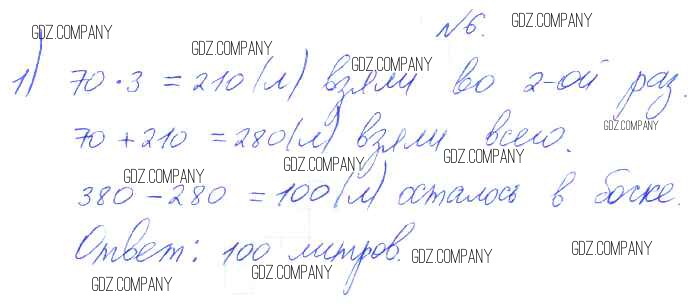 №6.
1) 70·3 = 210 (л) взяли во 2-ой раз.
70 + 210 = 280 (л) взяли всего.
380 - 280 = 100 (л) осталось в бочке.
Ответ: 100 литров.
GDZ.COMPANY
GDZ.COMPANY
GDZ.COMPANY
GDZ.COMPANY
GDZ.COMPANY
GDZ.COMPANY
GDZ.COMPANY
GDZ.COMPANY
GDZ.COMPANY
GDZ.COMPANY
GDZ.COMPANY
GDZ.COMPANY
GDZ.COMPANY
GDZ.COMPANY